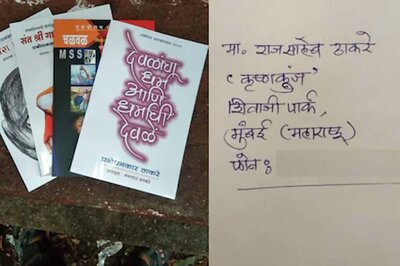 संत श्री गा
चळवळ
MSS
देवळांचा
धर्म
आणि
धर्माची
देवळे
प्रबोधनकार ठाकरे
मा. राजसाहेब ठाकरे
‘कृष्णकुंज’
शिवाजी पार्क,
मुंबई (महाराष्ट्र)
फोन :